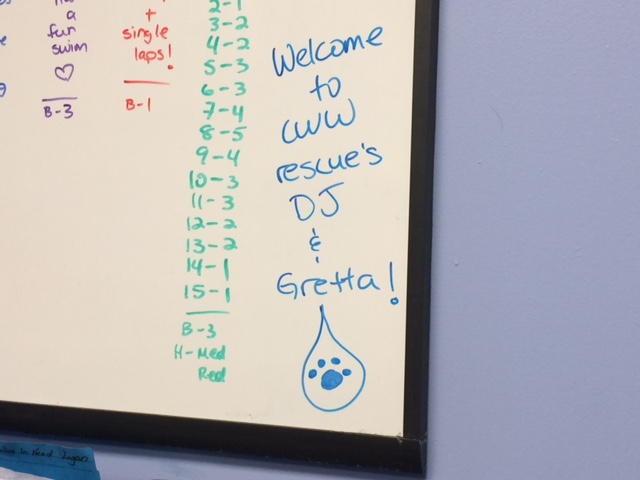 a
fun
swim
B-3
+
single
laps!
B-1
2-1
3-2
4-2
5-3
6-3
7-4
8-5
9-4
10-3
11-3
12-2
13-2
14-1
15-1
B-3
H-Med
Red
Welcome
to
CWW
rescue's
DJ
&
Gretta!
in Head Logan